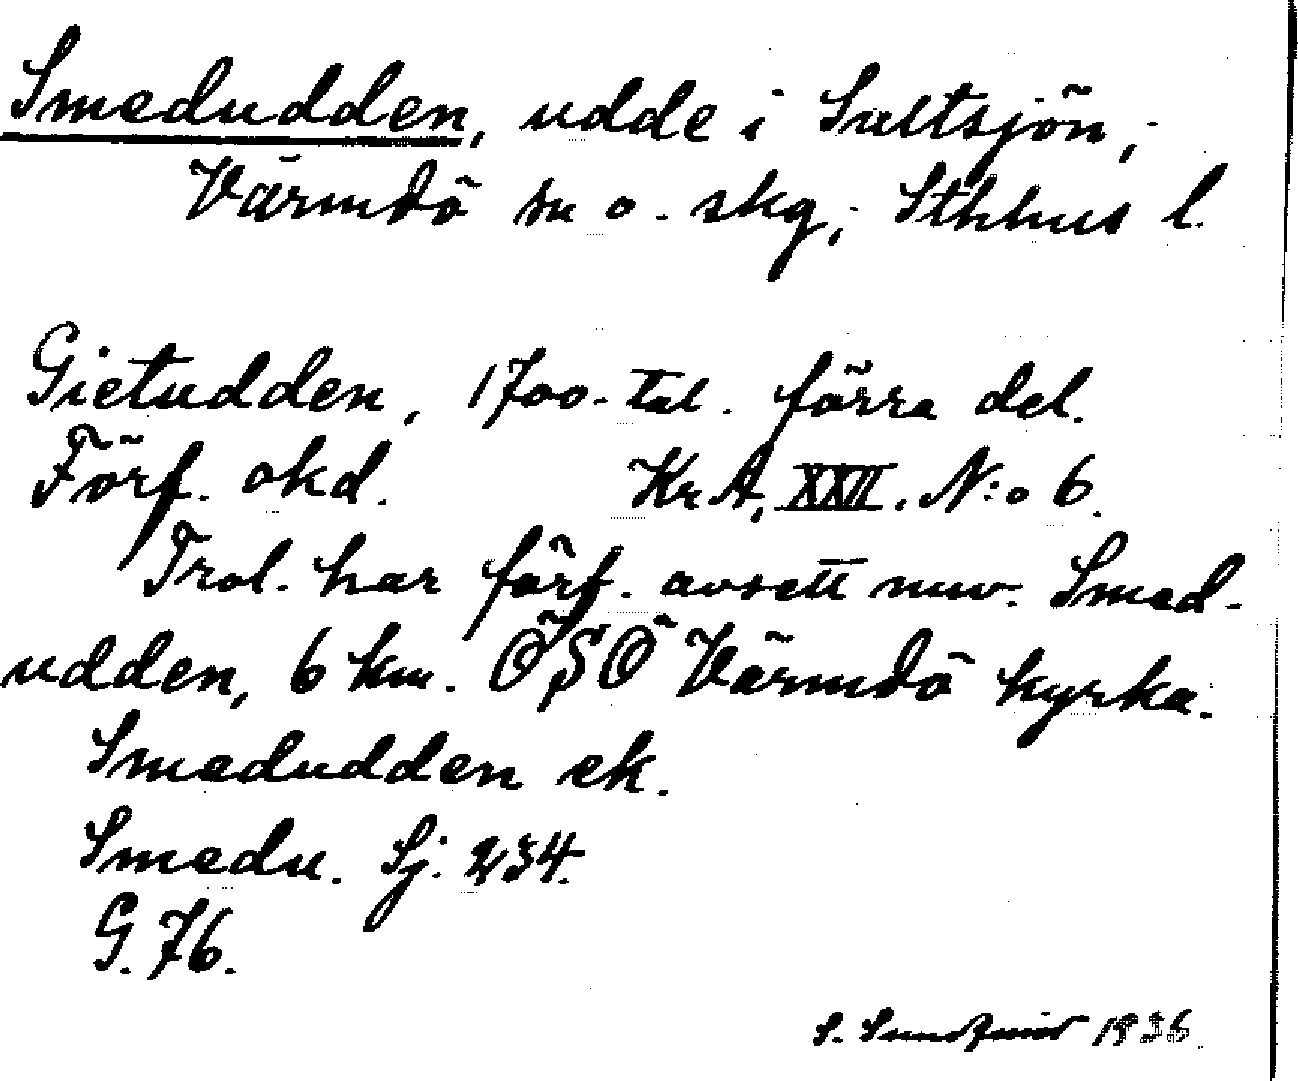 Smedudden, udde i Saltsjön,
Värmdö sn o. skg, Sthlms l.
Gietudden, 1700-tal. förra del.
Förf. okd. KrA, XXII. N:o 6.
Trol. har förf. avsett nuv. Smed-
udden, 6 km. ÖSÖ Värmdö kyrka.
Smedudden ek.
Smedu. Sj. 234.
G. 76.
S. Sundqvist 1936